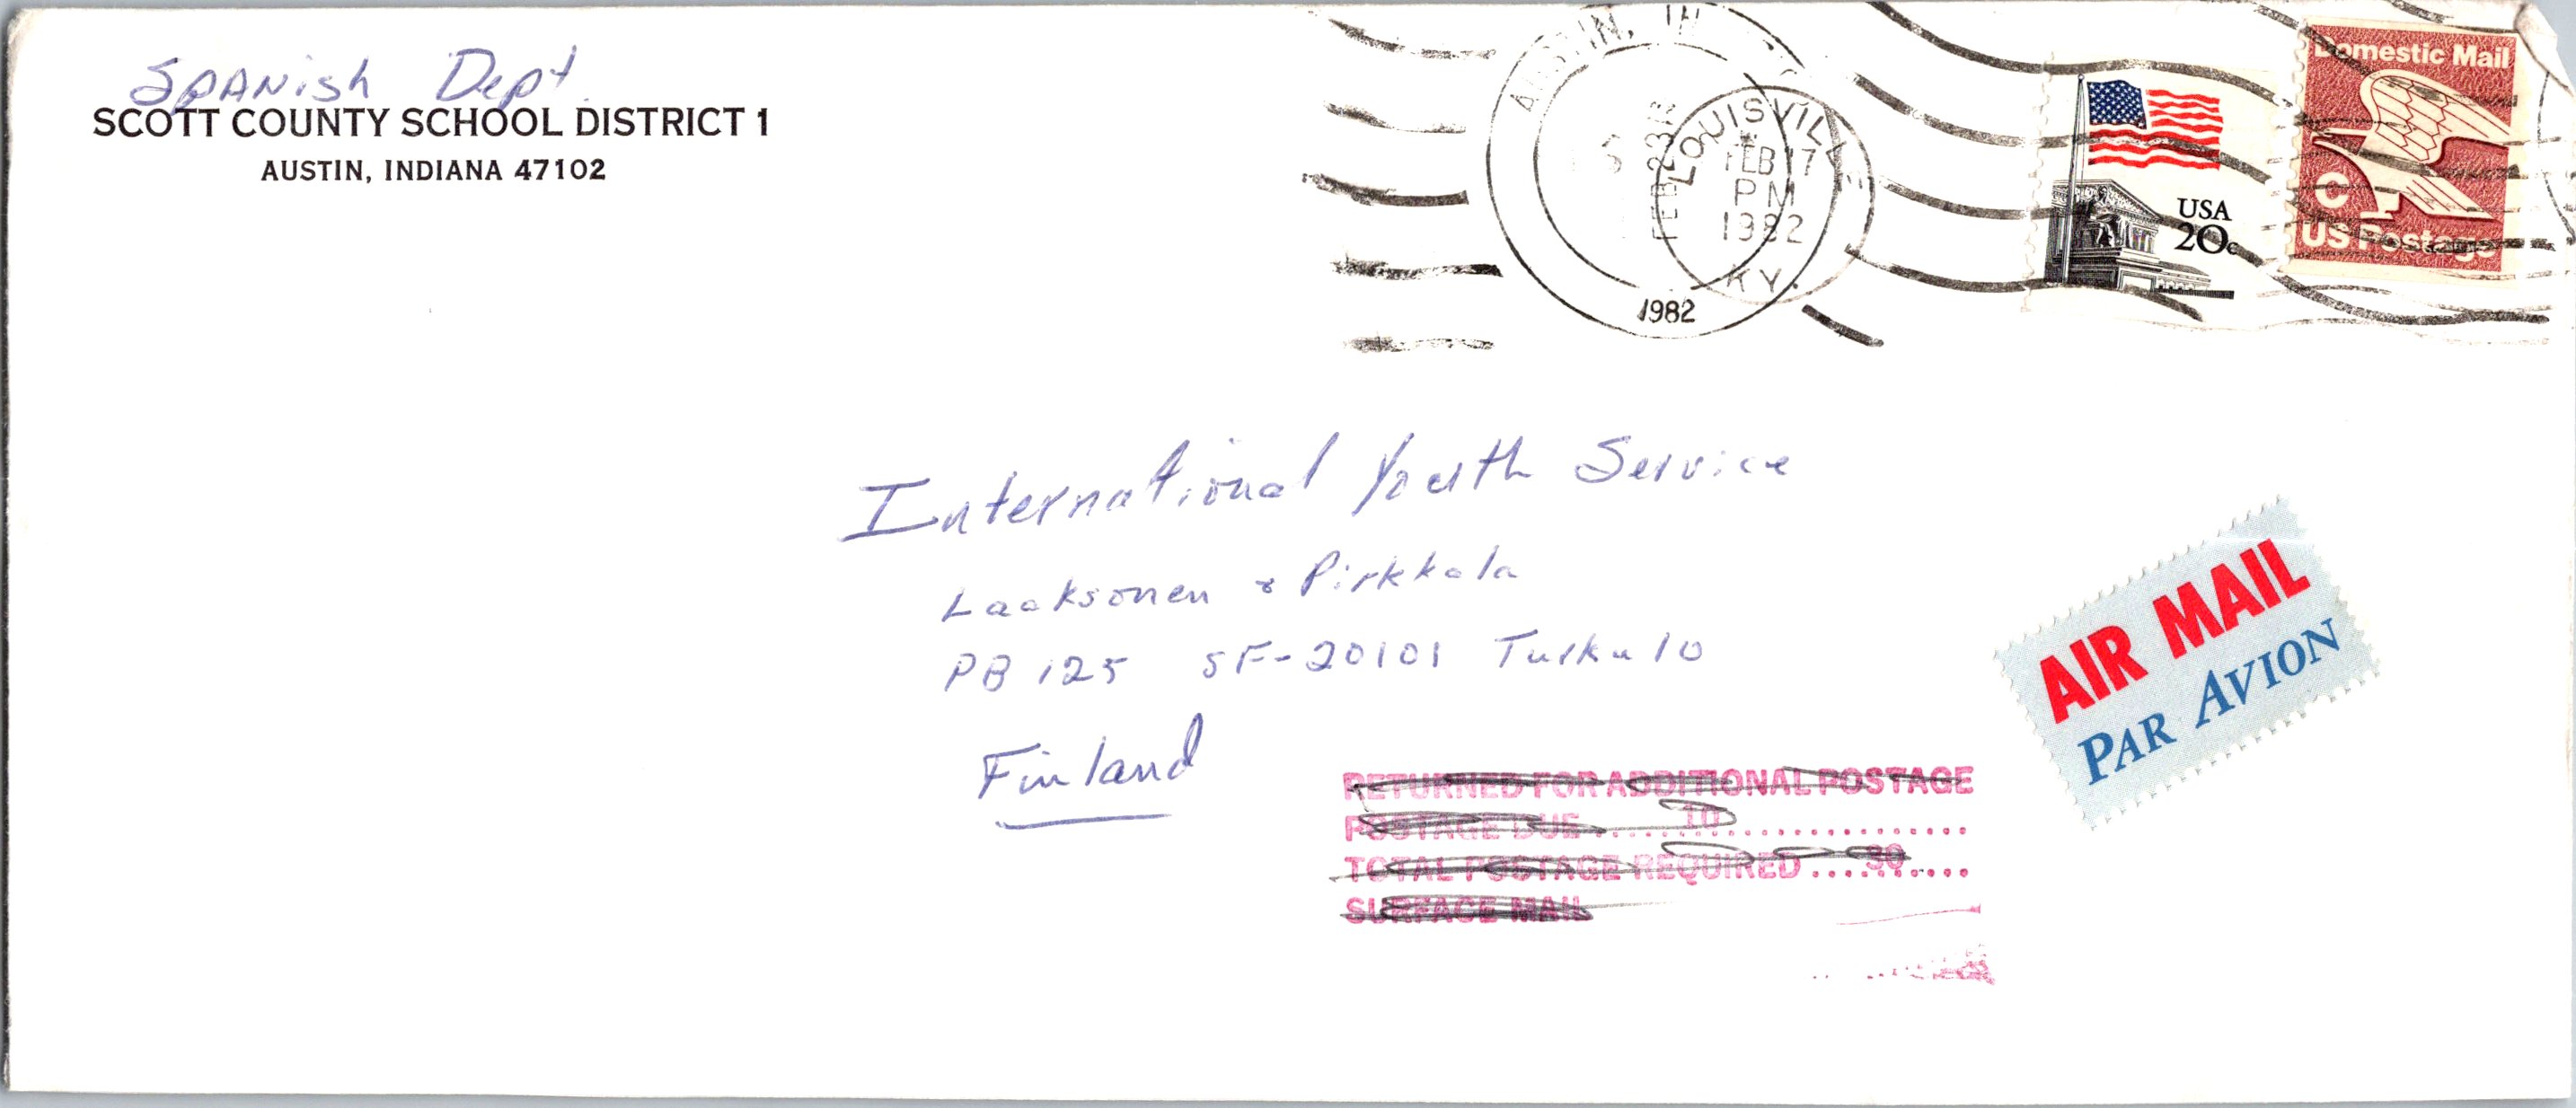 Spanish Dept.
SCOTT COUNTY SCHOOL DISTRICT 1
AUSTIN, INDIANA 47102
AUSTIN, IN
FEB 23
1982
LOUISVILLE
FEB 17
PM
1982
KY.
USA
20c
Domestic Mail
C
US Postage
International Youth Service
Laaksonen & Pirkkala
PB 125 SF-20101 Turku 10
Finland
AIR MAIL
PAR AVION
RETURNED FOR ADDITIONAL POSTAGE
POSTAGE DUE ........10................
TOTAL POSTAGE REQUIRED ....30....
SURFACE MAIL